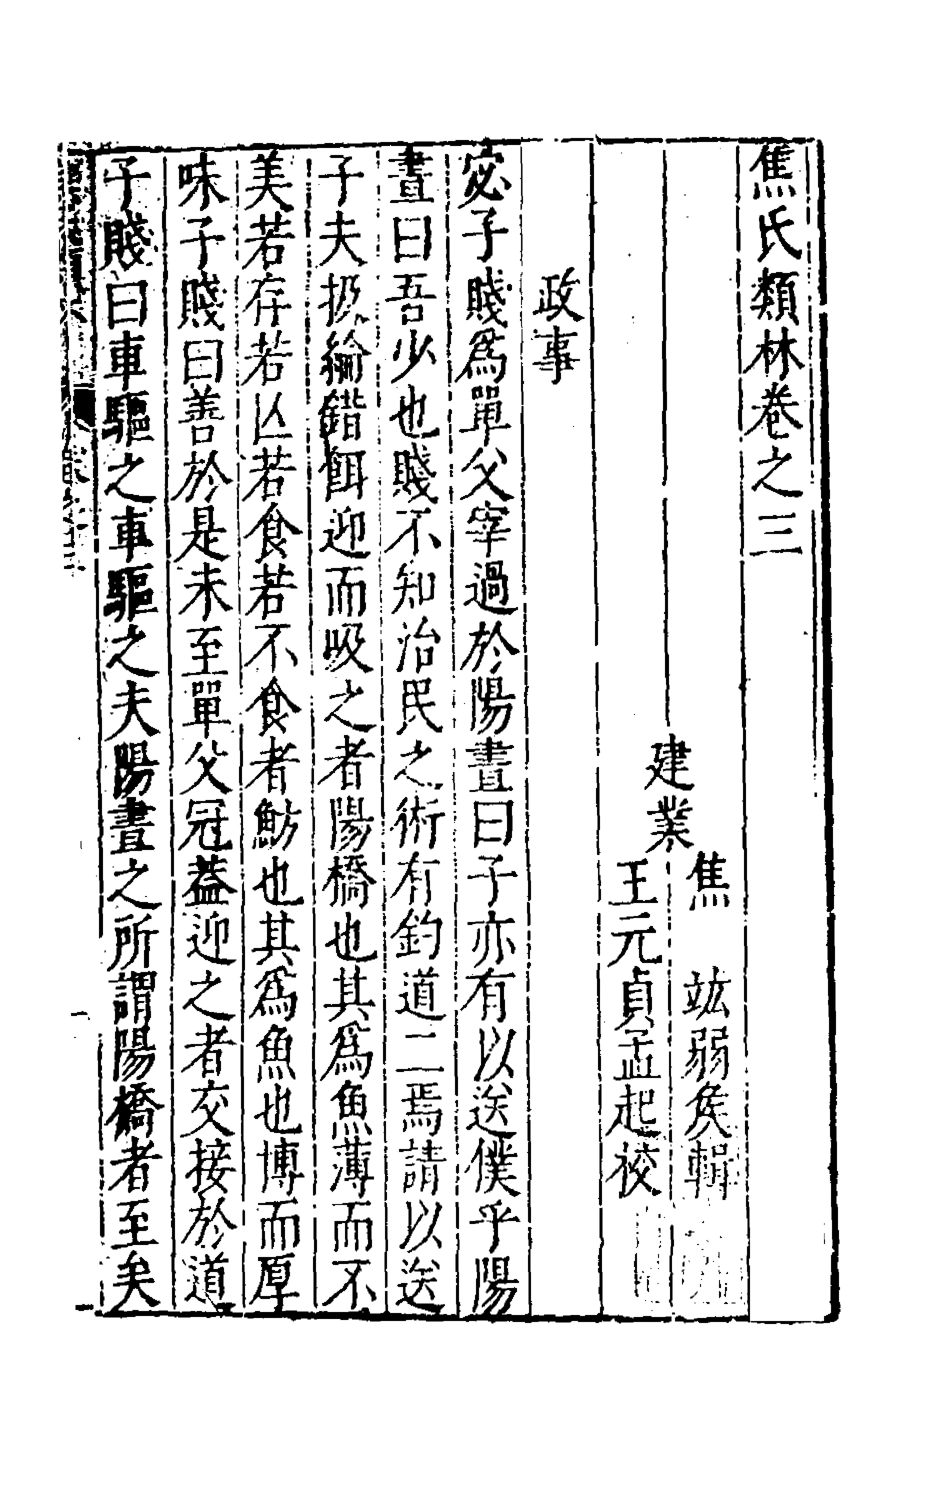 焦氏類林卷之三
建業
焦　竑弱矦輯
王元貞孟起校
政事
宓子賤爲單父宰過於陽晝曰子亦有以送僕乎陽
晝曰吾少也賤不知治民之術有釣道二焉請以送
子夫扱綸錯餌迎而吸之者陽橋也其爲魚薄而不
美若存若亾若食若不食者魴也其爲魚也博而厚
味子賤曰善於是未至單父冠葢迎之者交接於道
子賤曰車驅之車驅之夫陽晝之所謂陽橋者至矣